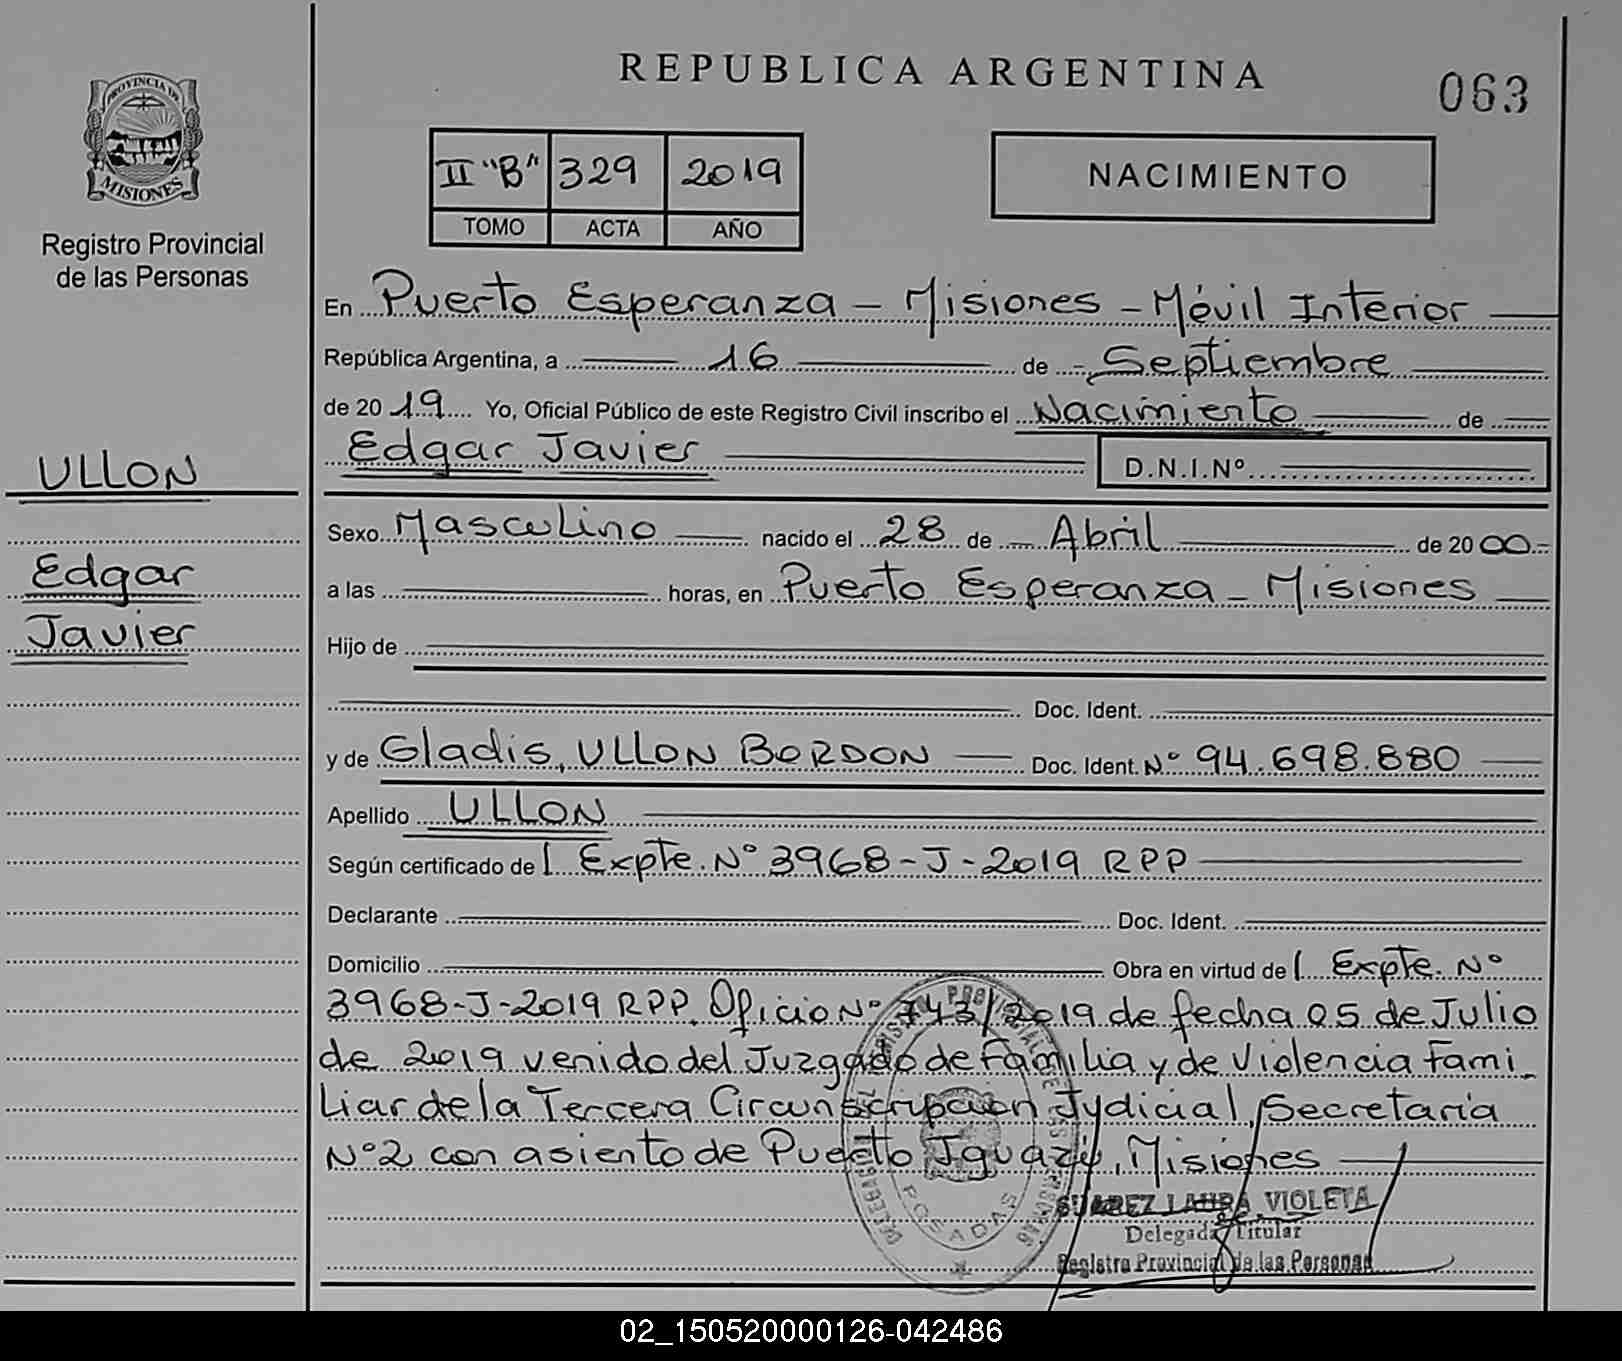 REPUBLICA ARGENTINA
063
PROVINCIA DE
MISIONES
Registro Provincial
de las Personas
II "B" 329 2019
TOMO ACTA AÑO
NACIMIENTO
En Puerto Esperanza - Misiones - Móvil Interior
República Argentina, a 16 de Septiembre
de 2019 Yo, Oficial Público de este Registro Civil inscribo el Nacimiento de
Edgar Javier D.N.I.Nº
ULLON
Edgar
Javier
Sexo Masculino nacido el 28 de Abril de 2000
a las horas, en Puerto Esperanza - Misiones
Hijo de
Doc. Ident.
y de Gladis, ULLON BORDON Doc. Ident. Nº 94.698.880
Apellido ULLON
Según certificado de Expte. Nº 3968-J-2019 RPP
Declarante Doc. Ident.
Domicilio Obra en virtud de Expte. Nº
3968-J-2019 RPP. Oficio Nº 743/2019 de fecha 05 de Julio
de 2019 venido del Juzgado de Familia y de Violencia Fami-
liar de la Tercera Circunscripción Judicial, Secretaría
Nº2 con asiento de Puerto Iguazú, Misiones
POSADAS
SUAREZ LAURA VIOLETA
Delegada Titular
Registro Provincial de las Personas
02_150520000126-042486